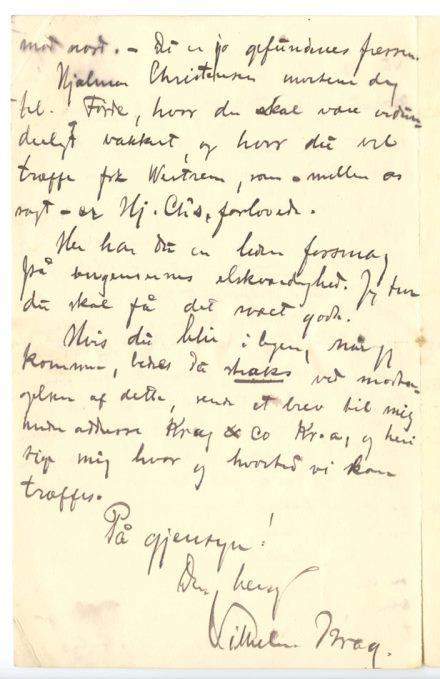 mod nord. – Du er jo gefundenes fressen.
Hjalmar Christensen mottene dig
til Førde, hvor du skal være vidun-
derligt vakkert, og hvor du vil
træffe frk Westrem, som – mellem os
sagt – er Hj. Chs, forlovede.
Her har du en liden forsmag
på bergensernes elskværdighed. Jeg tror
du skal få det svært godt.
Hvis du blir i byen, når jeg
kommer, bedes du straks ved modta-
gelsen af dette, sende et brev til mig
under adresse Krag & Co Kr.a, og heri
sige mig hvor og hvortid vi kan
træffes.
På gjensyn!
Din heng
Vilhelm Krag.